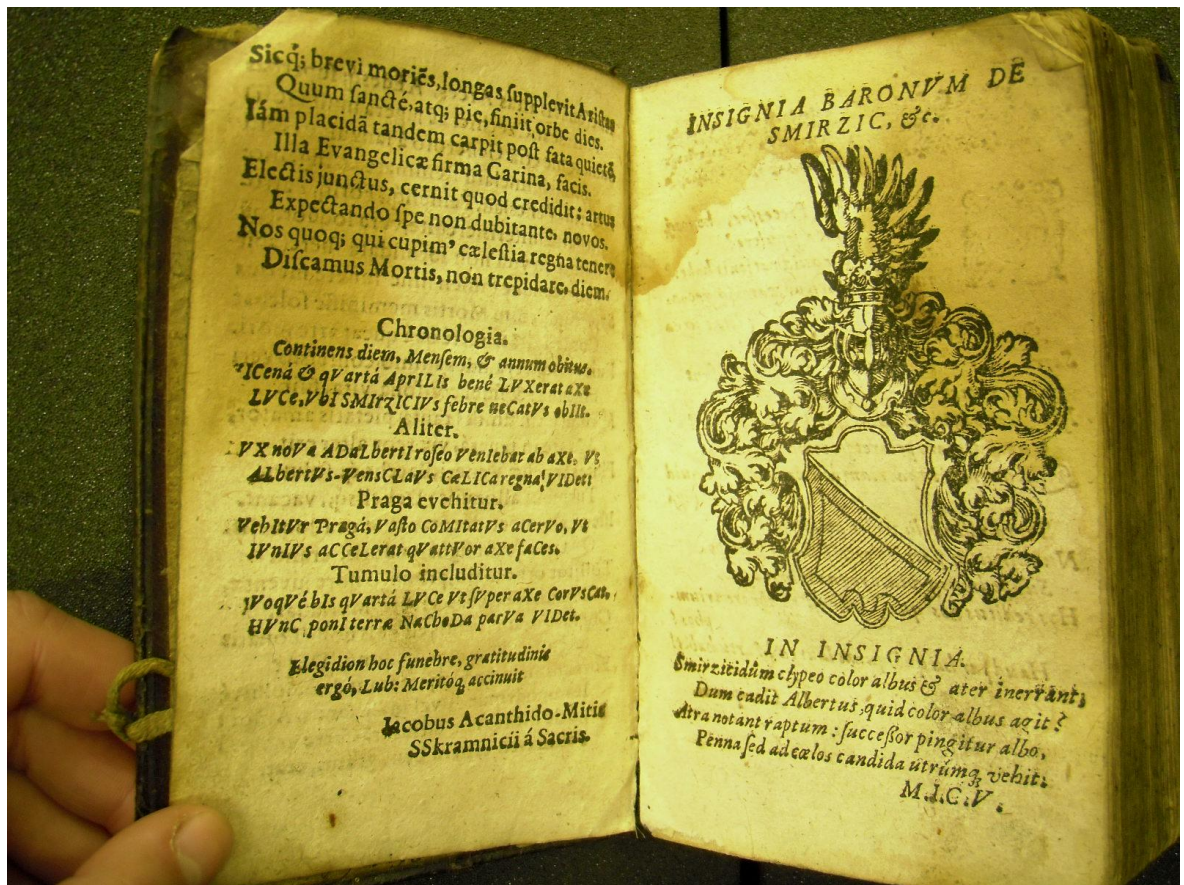 Sicq́; brevi moriẽs, longas supplevit Aristas
Quum sancté, atq; pie, finiit orbe dies.
Iám placidã tandem carpit post fata quietẽ,
Illa Evangelicæ firma Carina, facis.
Electis junctus, cernit quod credidit: artus
Expectando spe non dubitante, novos.
Nos quoq; qui cupim' cælestia regna tenere
Discamus Mortis, non trepidare, diem.
Chronologia.
Continens diem, Mensem, & annum obitus.
ICená & qVartá AprILis bené LVXerat aXe
LVCe, VbI SMIrzICIVs febre neCatVs obIIt.
Aliter.
VX noVa ADalbertI roseo VenIebat ab aXe, Vt
ALbertVs-VensCLaVs CæLICa regna VIDet:
Praga evehitur.
VehItVr Pragá, Vasto CoMItatVs aCerVo, Vt
IVnIVs aCCeLerat qVattVor aXe faCes.
Tumulo includitur.
IVoqVé bIs qVartá LVCe Vt sVper aXe CorVsCat,
HVnC ponI terræ NaChoDa parVa VIDet.
Elegidion hoc funebre, gratitudinis
ergó, Lub: Meritóq; accinuit
Iacobus Acanthido-Mitis
SSkramnicii á Sacris.
INSIGNIA BARONVM DE
SMIRZIC, &c.
IN INSIGNIA.
Smirzitidûm clypeo color albus & ater inerrant;
Dum cadit Albertus, quid color albus agit?
Atra notant raptum: successor pingitur albo,
Penna sed ad cœlos candida utrúmq; vehit.
M.I.C.V.